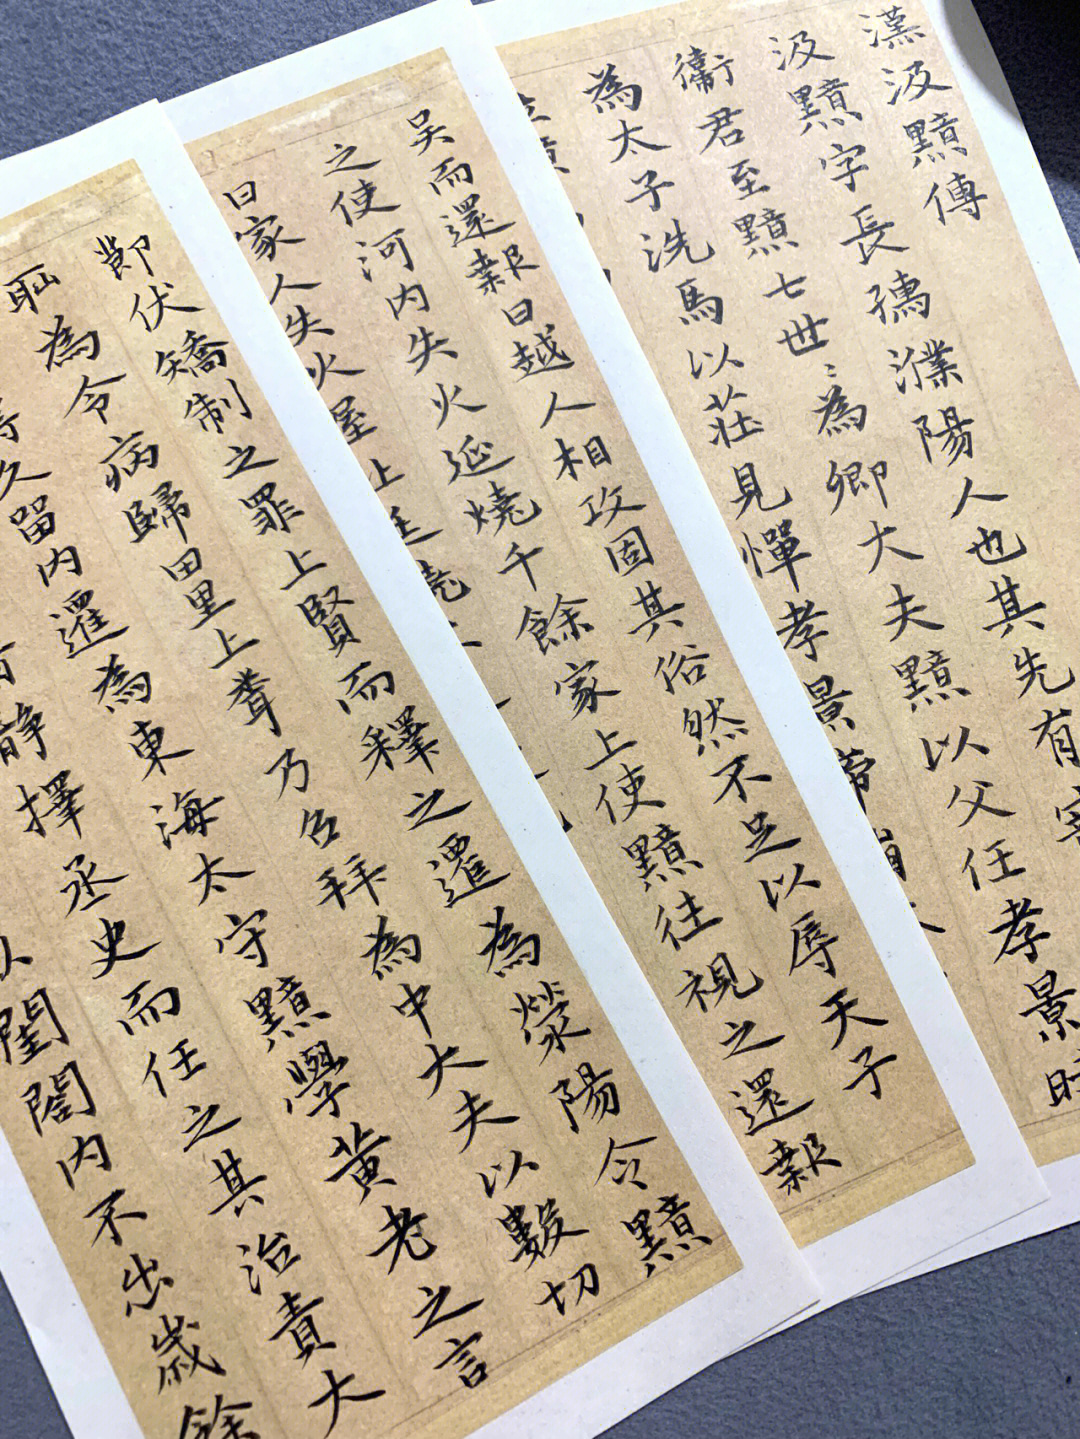 漢汲黯傳
汲黯字長孺濮陽人也其先有
衛君至黯七世:為卿大夫黯以父任孝景時
為太子洗馬以莊見憚孝景帝崩
吴而還報曰越人相攻固其俗然不足以辱天子
之使河内失火延燒千餘家上使黯往視之還報
曰家人失火屋比延燒
節伏矯制之罪上賢而釋之遷為滎陽令黯
恥為令病歸田里上聞乃召拜為中大夫以數切
得久留内遷為東海太守黯學黄老之言
静擇丞史而任之其治責大
閨閤内不出歲餘